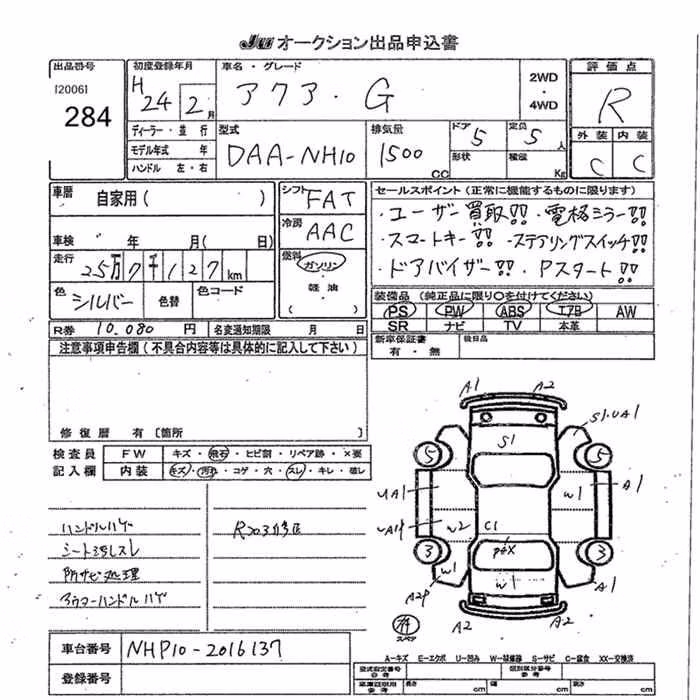 JU オークション出品申込書
出品番号
[2006]
284
初度登録年月
H 24 年 2 月
車名・グレード
アクア・G
2WD
・
4WD
評価点
R
外装 内装
C C
ディーラー・並行
モデル年式 年
ハンドル 左・右
型式
DAA-NH10
排気量
1500 CC
ドア 5
定員 5 人
形状
積量 Kg
車歴 自家用( )
車検 年 月( 日)
走行 25万7千127 km
色 シルバー 色替 色コード
R券 10.080 円 名変通知期限 月 日
シフト FAT
冷房 AAC
燃料 ガソリン
・
軽油
( )
セールスポイント(正常に機能するものに限ります)
・ユーザー買取!! ・電格ミラー!!
・スマートキー!! ・ステアリングスイッチ!!
・ドアバイザー!! Pスタート!!
装備品(純正品に限り○を付けてください)
PS PW ABS エアB AW
SR ナビ TV 本革
新車保証書
有・無
後日品
注意事項申告欄(不具合内容等は具体的に記入して下さい)
修復歴 有[箇所 ]
検査員
記入欄
FW キズ・飛石・ヒビ割・リペア跡・×要
内装 キズ・汚れ・コゲ・穴・スレ・キレ・破レ
ハンドルハゲ
シート汚レスレ
防サビ処理
アウターハンドルハゲ
A1 A2
S1・UA1
S1
5 5
UA1 W1 A1
UA1
W2 C1
3 3
W1 W1 A1
A2 A2
有
スペア
A-キズ E-エクボ U-凹み W-補修跡 S-サビ C-腐食 XX-交換済
車台番号 NHP10-2016137
登録番号
型式指定番号
参考
類別区分番号
参考
長さ cm 幅 cm 高さ cm